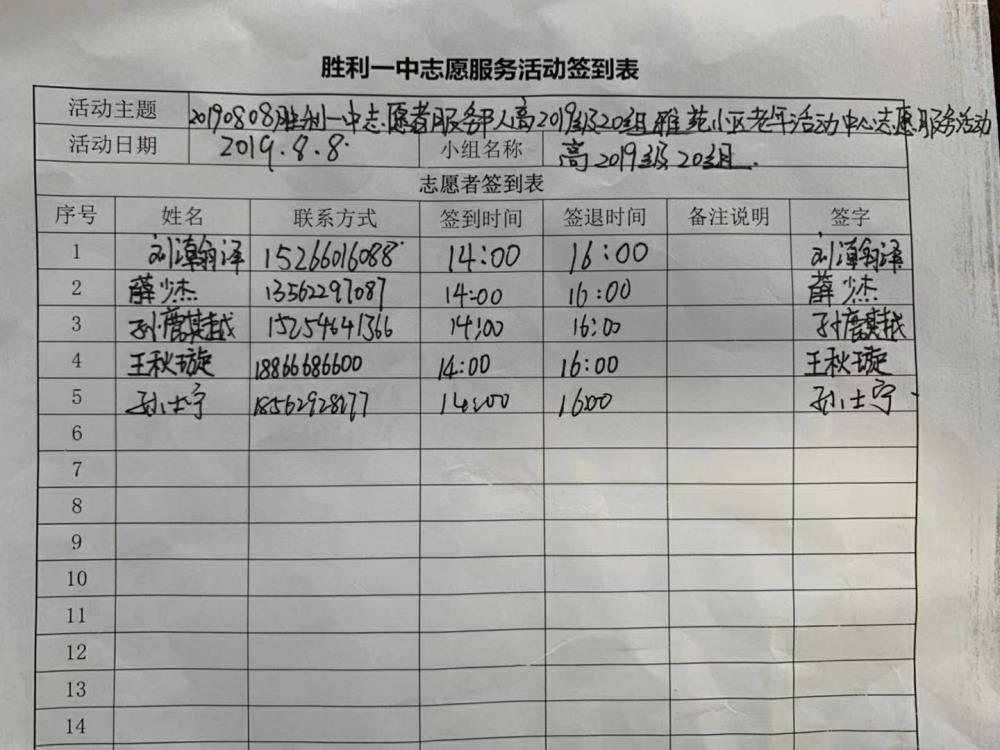 胜利一中志愿服务活动签到表
活动主题 20190808胜利一中志愿者服务队高2019级20组雅苑小区老年活动中心志愿服务活动
活动日期 2019.8.8. 小组名称 高2019级20组.
志愿者签到表
序号 姓名 联系方式 签到时间 签退时间 备注说明 签字
1 刘漳翰泽 15266016088 14:00 16:00 刘漳翰泽
2 薛少杰 13562297087 14:00 16:00 薛少杰
3 孙唐其越 15254641366 14:00 16:00 孙唐其越
4 王秋璇 18866686600 14:00 16:00 王秋璇
5 孙士宁 18562928177 14:00 16:00 孙士宁
6
7
8
9
10
11
12
13
14